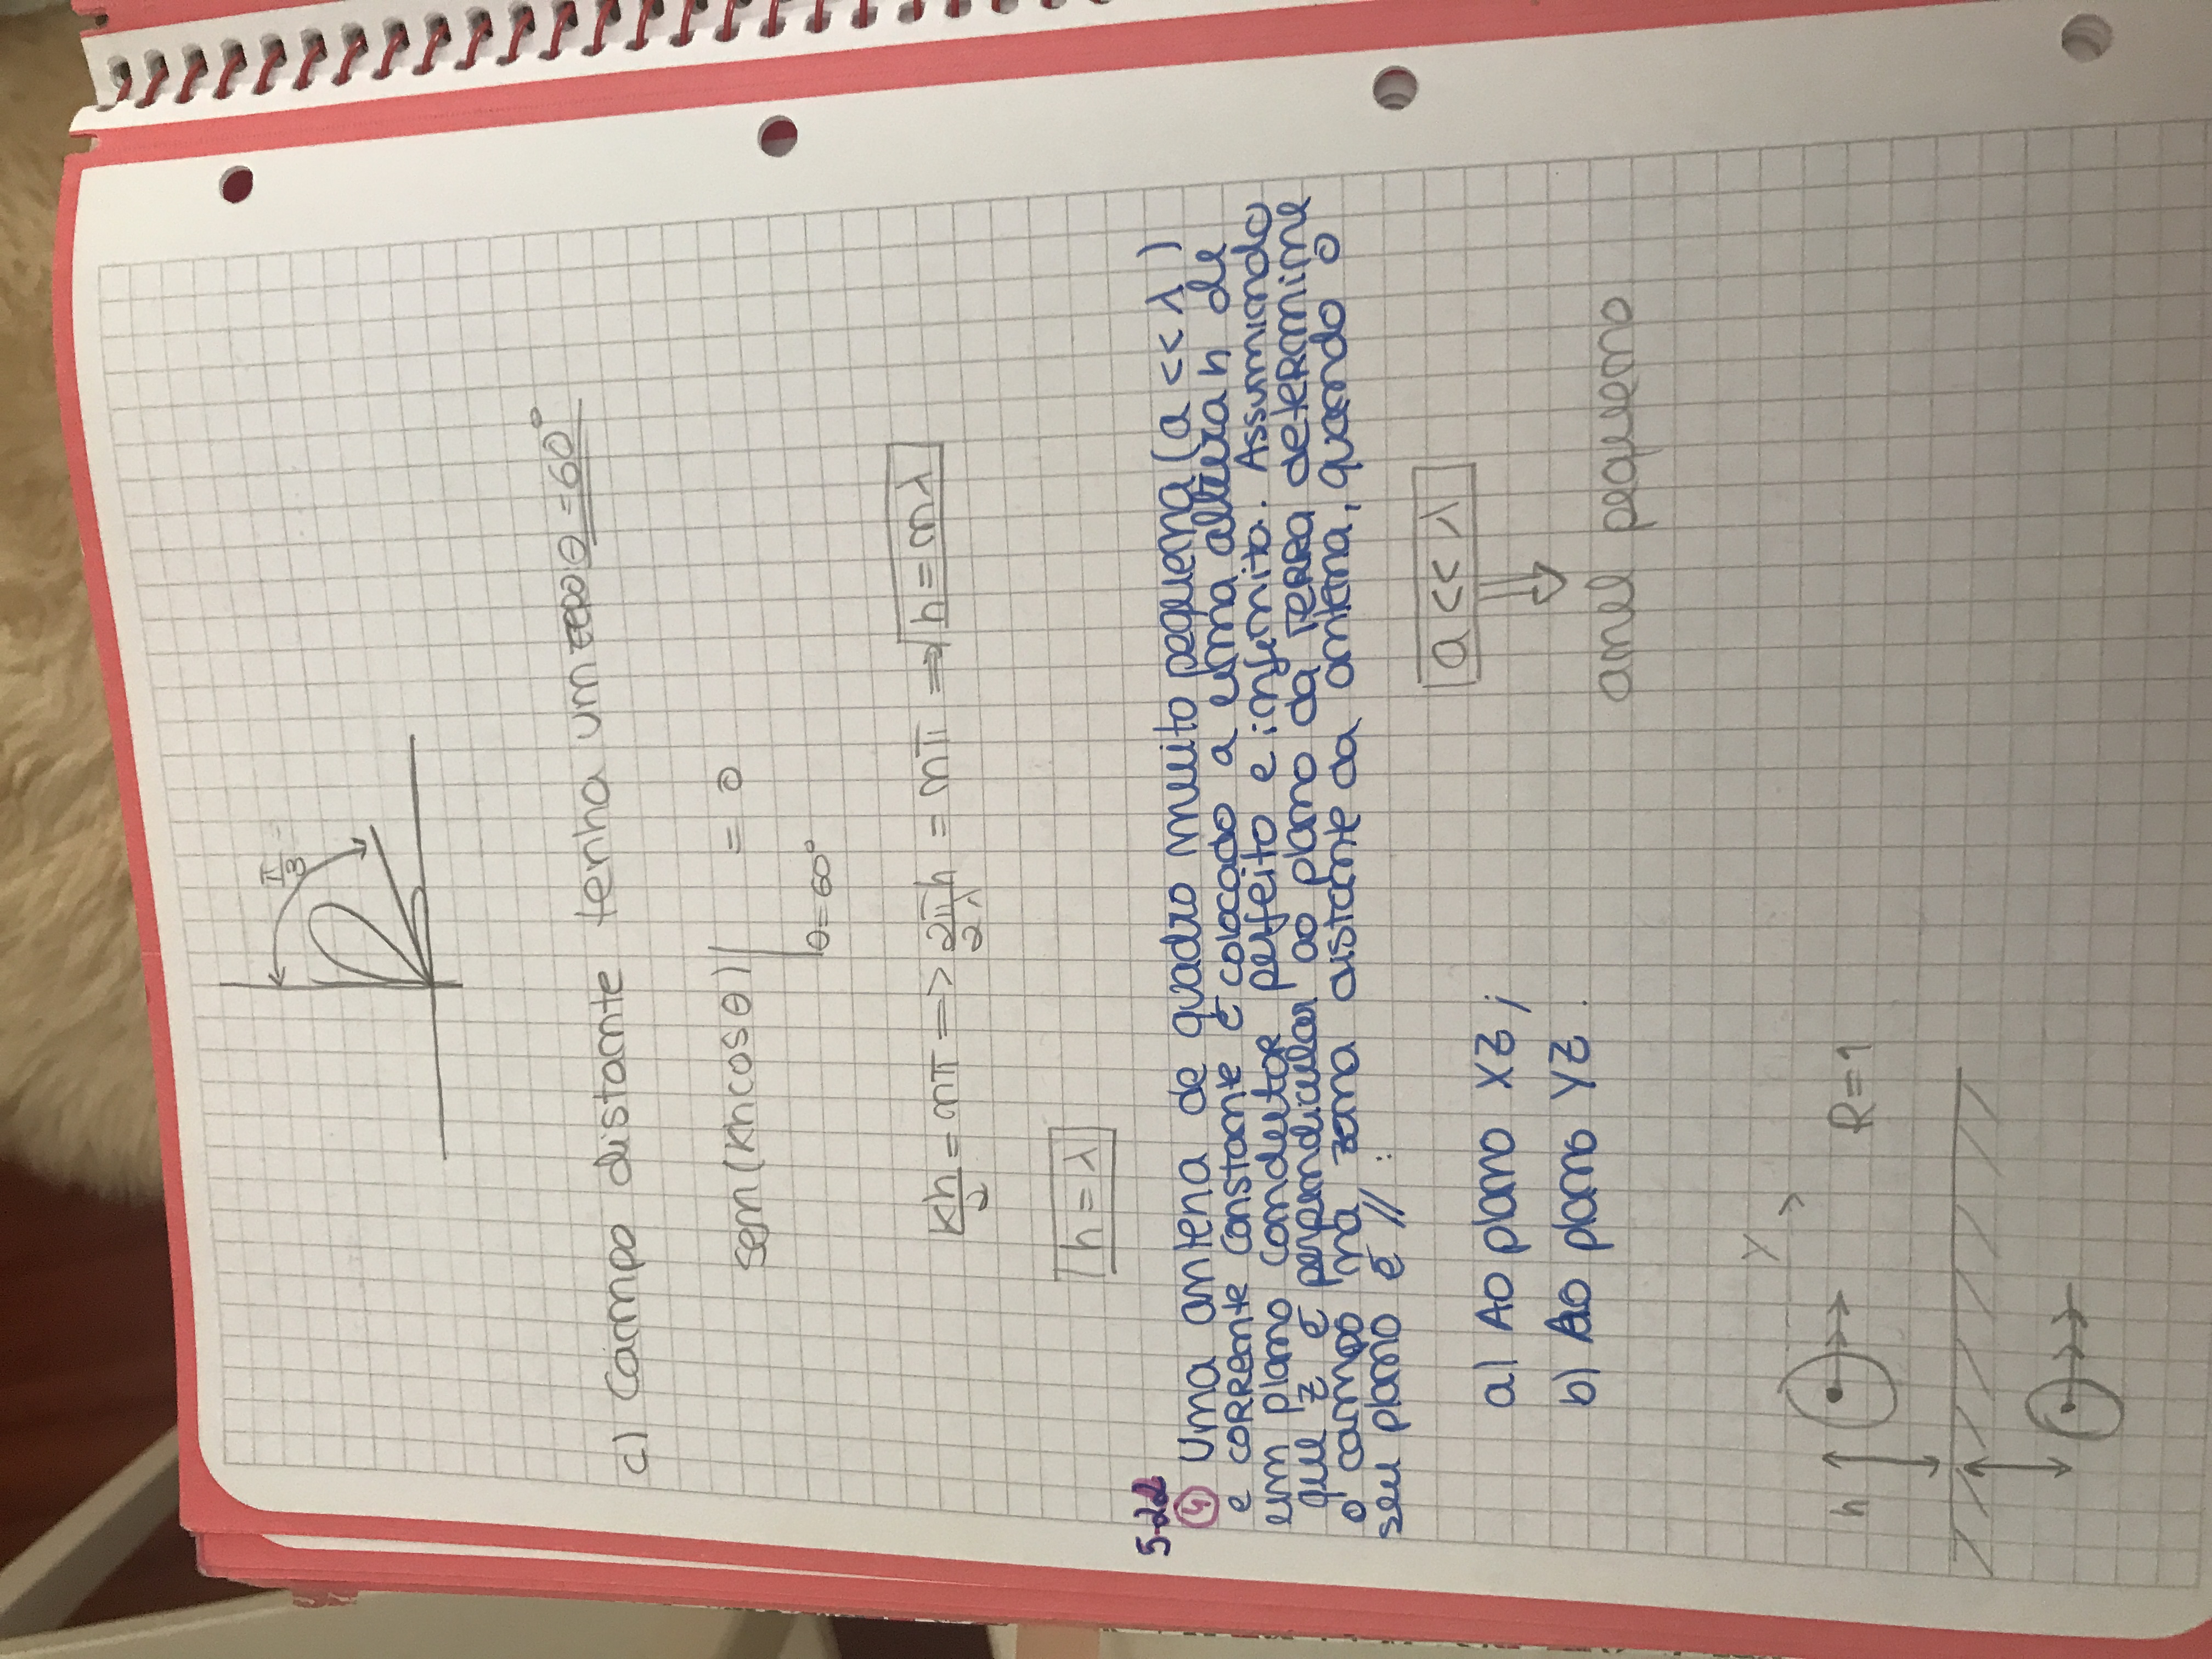 π/3
c) Campo distante tenha um zero θ = 60°
sen(kh cos θ)|θ=60° = 0
kh/2 = nπ => 2πh/2λ = nπ => h = nλ
h = λ
5-22
④ Uma antena de quadro muito pequena (a << λ)
e corrente constante é colocado a uma altura h de
um plano condutor perfeito e infinito. Assumindo
que Z é perpendicular ao plano da TERRA determine
o campo na zona distante da antena, quando o
seu plano é // :
a << λ
a) Ao plano XZ ;
b) Ao plano YZ .
anel pequeno
Y
h
R=1